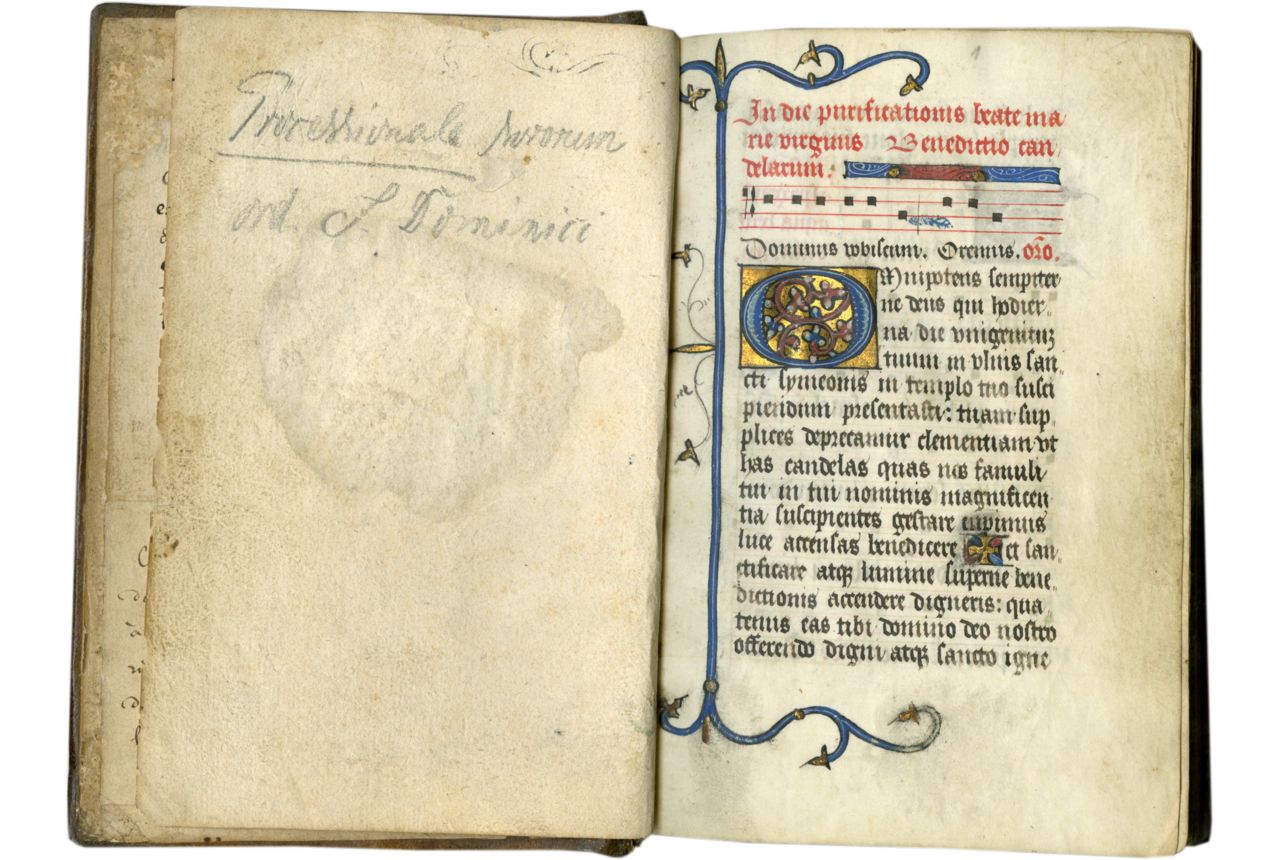 Processionale sororum
ord S. Dominici
1
In die purificationis beate ma
rie virginis Benedictio can
delarum.
Dominus vobiscum. Oremus. oro.
Omnipotens sempiter
ne deus qui hodier
na die vnigenitum
tuum in vlnis san
cti symeonis in templo tuo susci
piendum presentasti: tuam sup
plices deprecamur clementiam vt
has candelas quas nos famuli
tui in tui nominis magnificen
tia suscipientes gestare cupimus
luce accensas benedicere et san
ctificare atq lumine superne bene
dictionis accendere digneris: qua
tenus eas tibi domino deo nostro
offerendo digni atq sancto igne